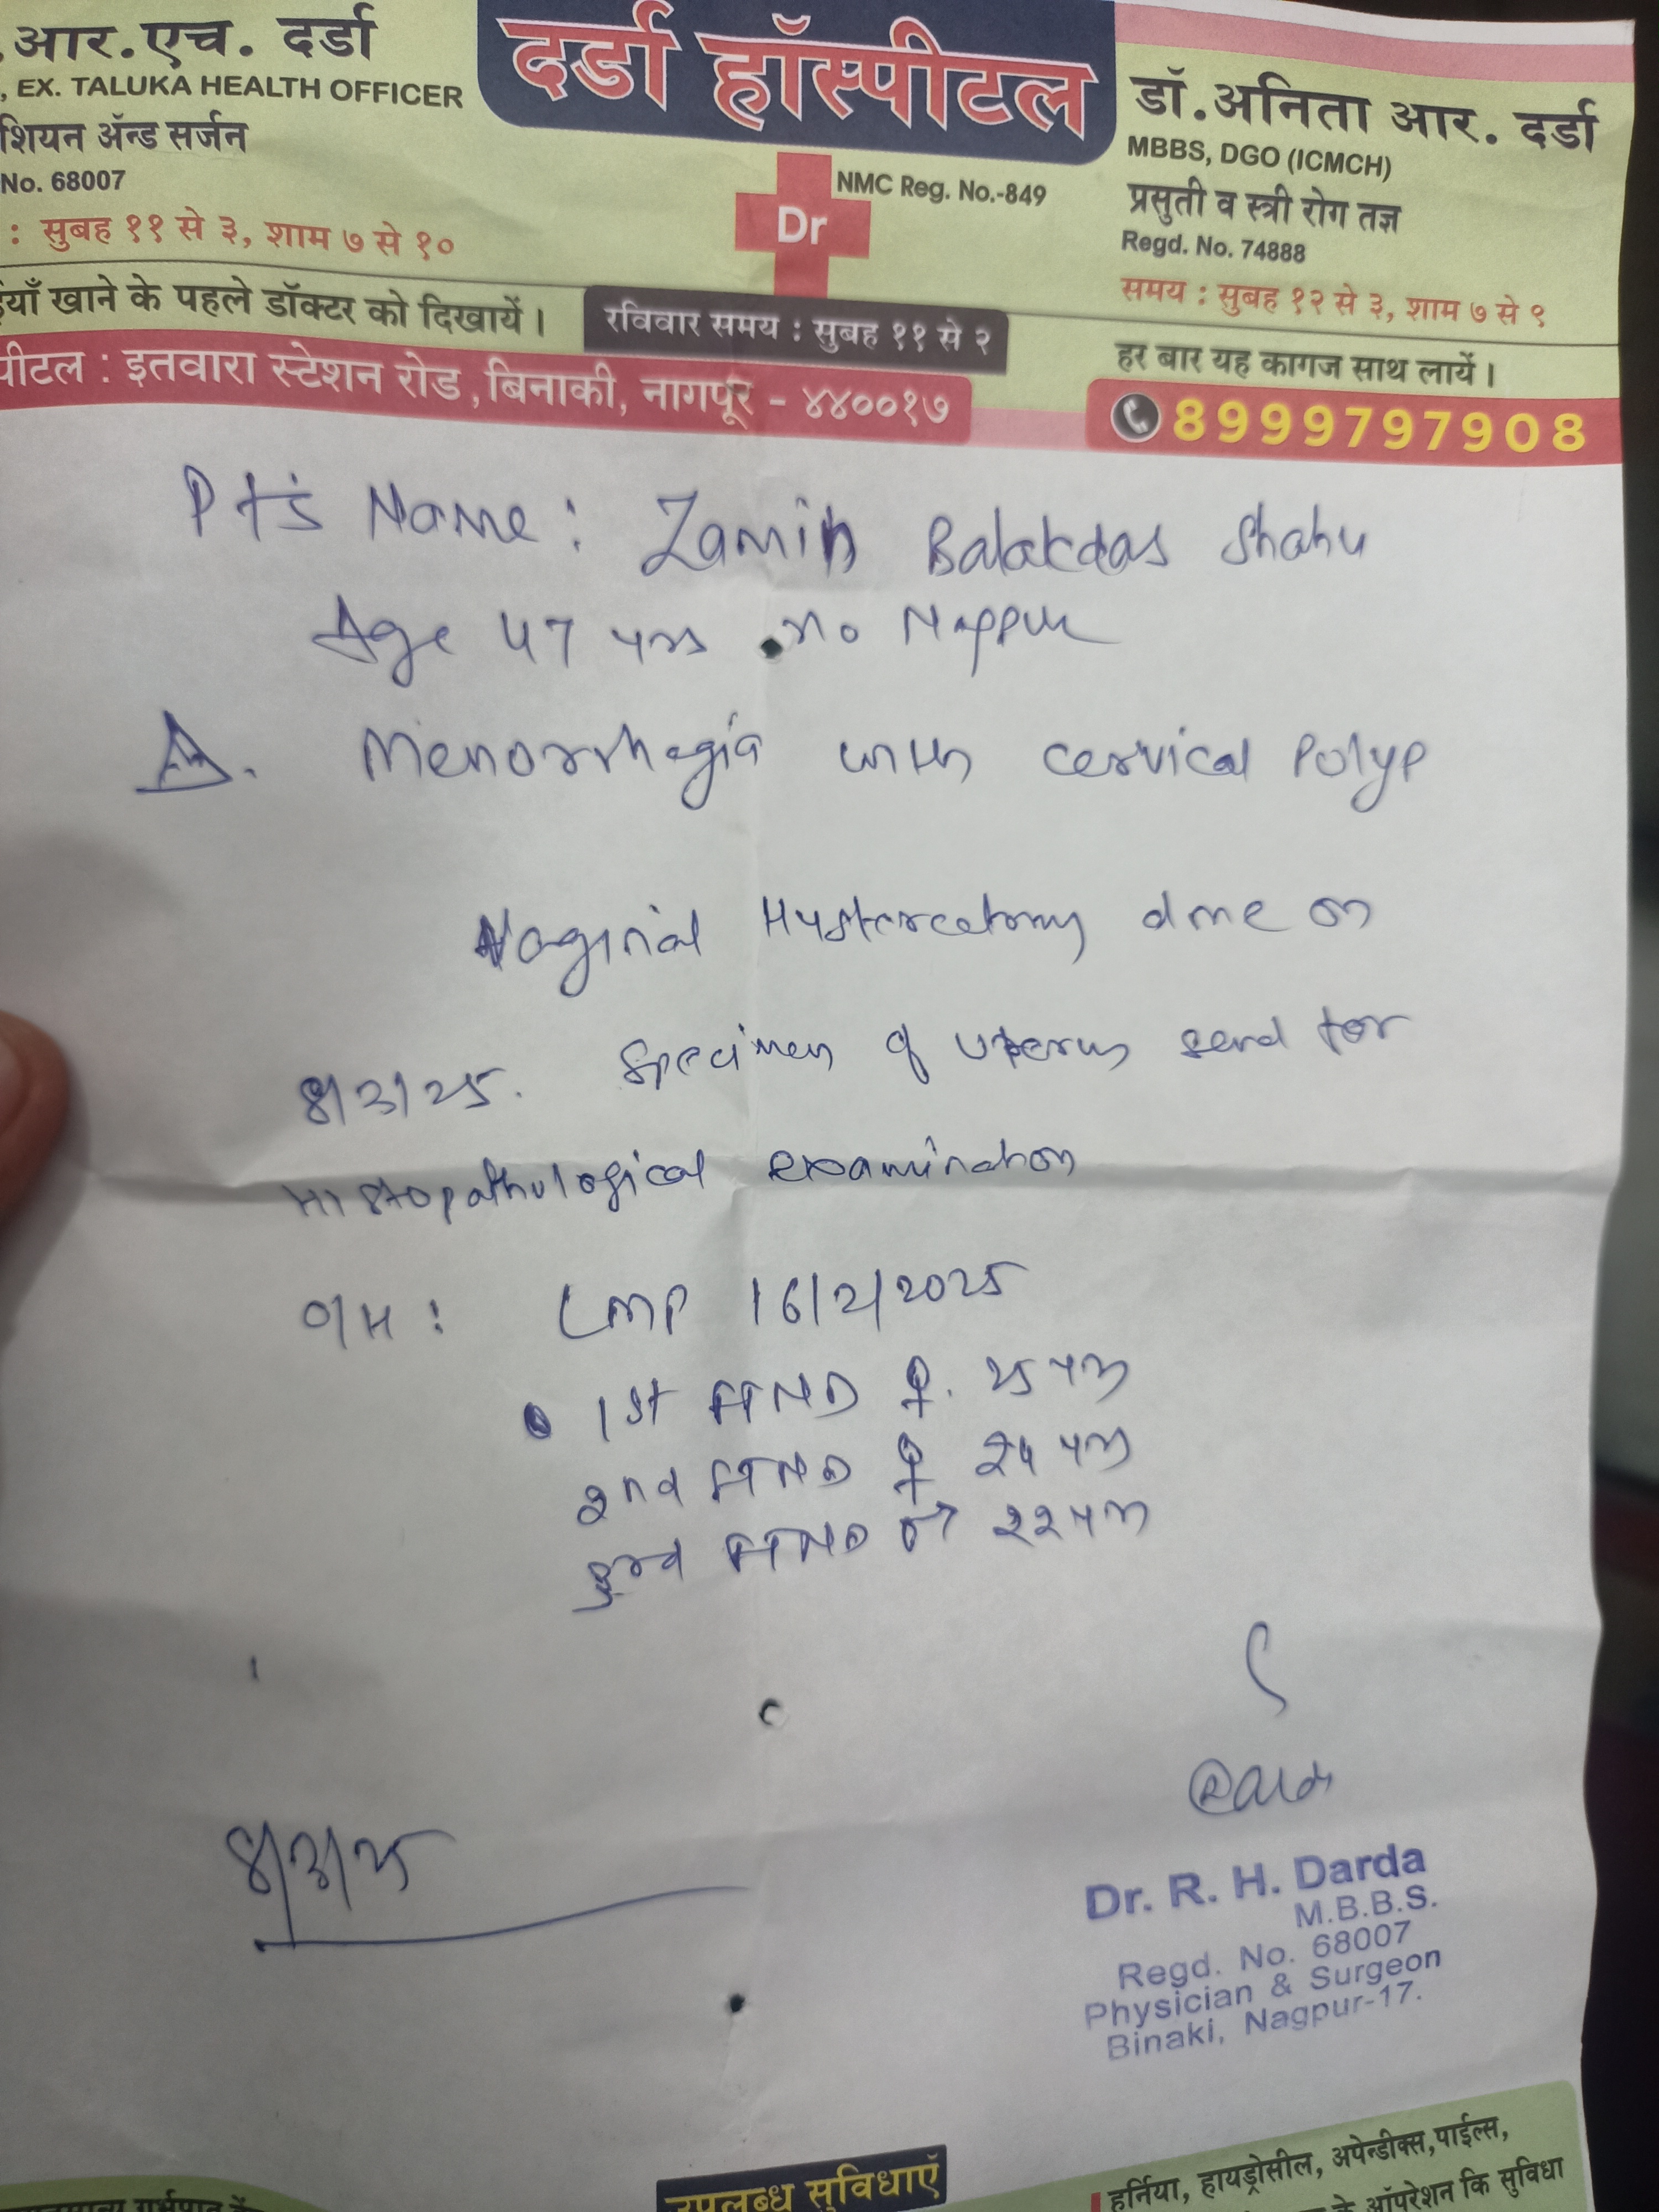 आर.एच. दर्डा
, EX. TALUKA HEALTH OFFICER
शियन ॲन्ड सर्जन
No. 68007
: सुबह ११ से ३, शाम ७ से १०
दर्डा हॉस्पीटल
Dr
NMC Reg. No.-849
डॉ.अनिता आर. दर्डा
MBBS, DGO (ICMCH)
प्रसुती व स्त्री रोग तज्ञ
Regd. No. 74888
समय : सुबह १२ से ३, शाम ७ से ९
खाने के पहले डॉक्टर को दिखायें।
रविवार समय : सुबह ११ से २
हर बार यह कागज साथ लायें।
पीटल : इतवारा स्टेशन रोड, बिनाकी, नागपूर - ४४००१७
8999797908
Pt's Name : Zamin Balakdas Shahu
Age 47 yrs Nagpur
Menorrhagia with cervical Polyp
Vaginal Hysterectomy done on
8/3/25. Specimen of Uterus send for
Histopathological examination
O/H : LMP 16/2/2025
1st FTND ♀. 25 yrs
2nd FTND ♀ 24 yrs
3rd FTND ♂ 22 yrs
8/3/25
Dr. R. H. Darda
M.B.B.S.
Regd. No. 68007
Physician & Surgeon
Binaki, Nagpur-17.
उपलब्ध सुविधाएँ
हर्निया, हायड्रोसील, अपेन्डीक्स, पाईल्स,
के ऑपरेशन कि सुविधा